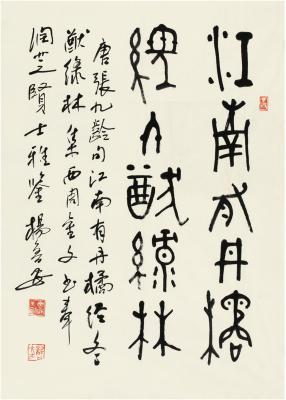 江南有丹橘
經冬猷綠林
唐張九齡句江南有丹橘經冬
猷綠林集西周金文書奉
潤芝賢士雅鑒楊魯安